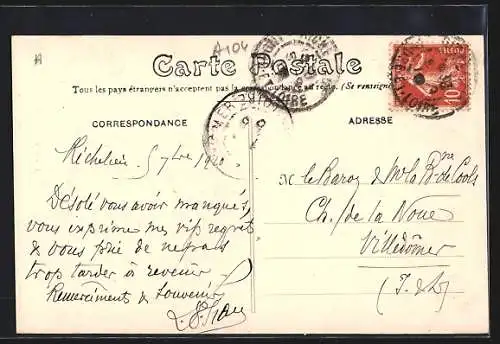 A104
Carte Postale
Tous les pays étrangers n'acceptent pas la correspondance au recto. (Se renseigner
CORRESPONDANCE
ADRESSE
Richelieu 5 7bre 1910
Désolé vous avoir manqués,
vous exprime mes vifs regrets
& vous prie de ne pas
trop tarder à revenir
Remerciments & Souvenirs
M le Baron & Me la Bne de Cools
Ch. de la Noue
Villedômer
(I. & L)
POSTES
10